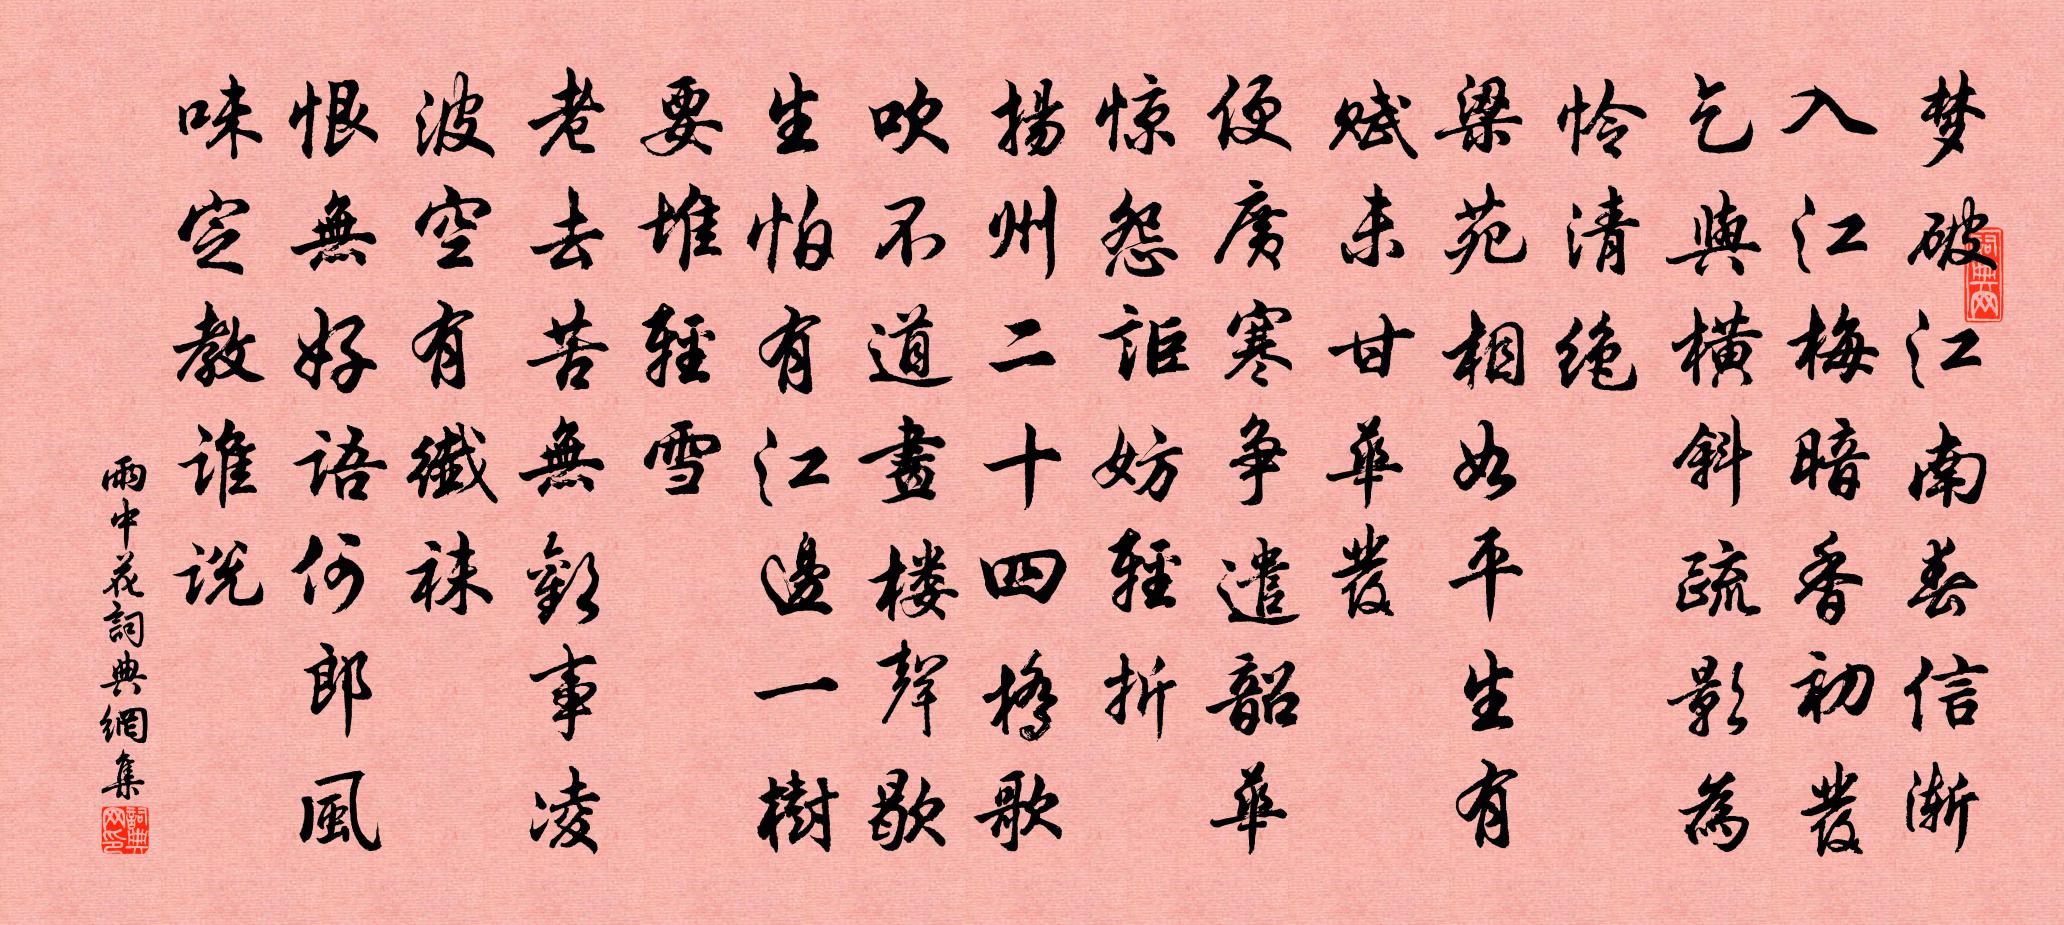 梦破江南春信渐
入江梅暗香初發
乞與横斜疏影為
怜清绝
梁苑相如平生有
赋未甘華發
便廣寒争遣韶華
惊怨詎妨輕折
揚州二十四橋歌
吹不道畫楼聲歇
生怕有江邊一樹
要堆輕雪
老去苦無歡事凌
波空有纖袜
恨無好語何郎風
味定教誰说
雨中花詞典網集
詞典网
詞典网印